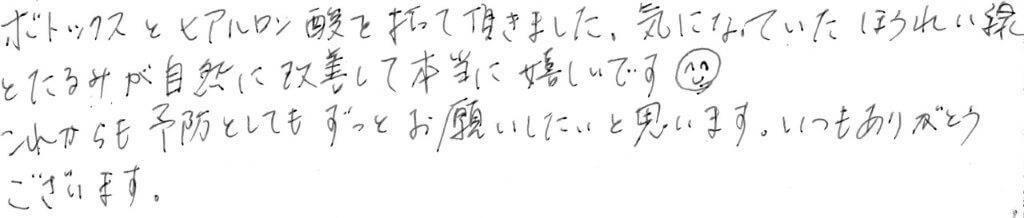 ボトックスとヒアルロン酸を打って頂きました。気になっていたほうれい線
とたるみが自然に改善して本当に嬉しいです
これからも予防としてもずっとお願いしたいと思います。いつもありがとう
ございます。